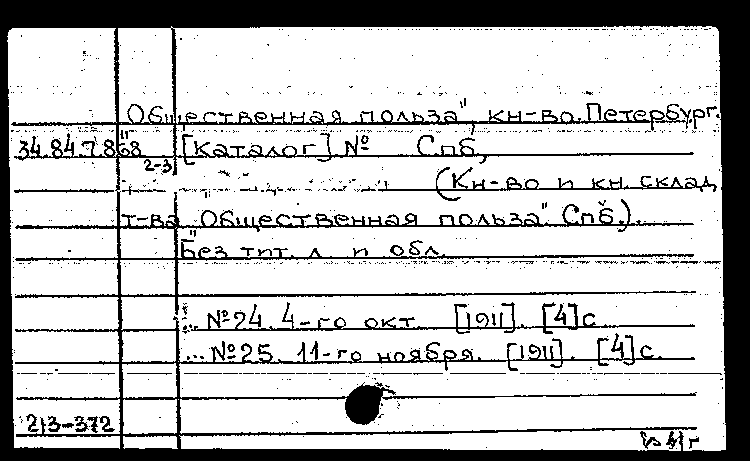 Общественная польза", кн-во. Петербург.
34.84.7.868 [Каталог] № Спб,
2-3
(Кн-во и кн. склад
т-ва "Общественная польза" Спб.).
Без тит. л. и обл.
... №24. 4-го окт. [1911]. [4]с.
... №25. 11-го ноября. [1911]. [4]с.
213-372